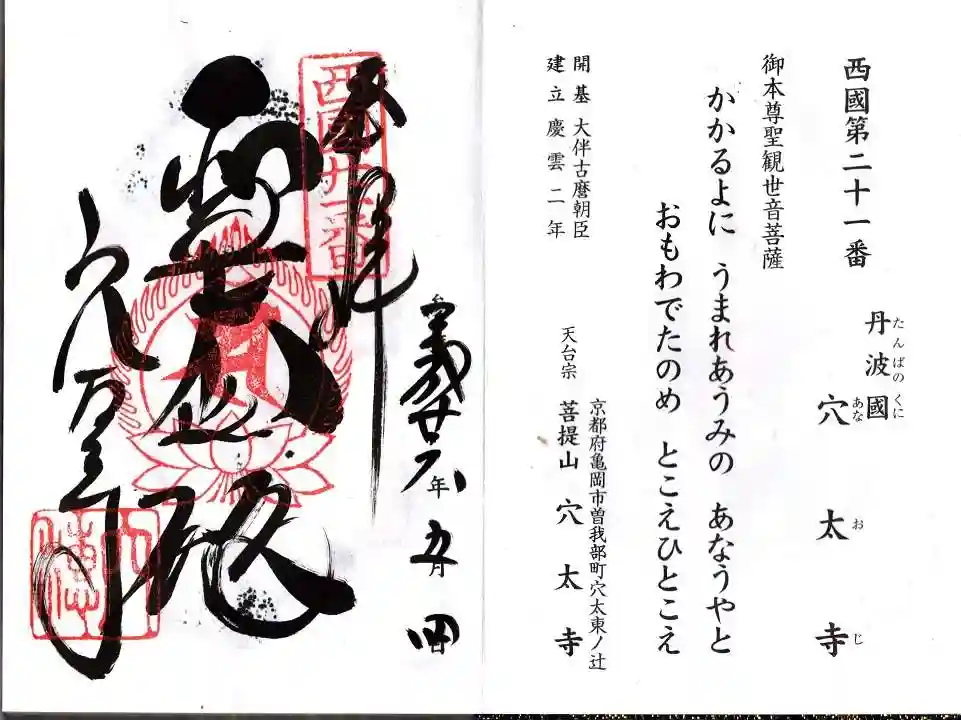 西國第二十一番
丹波國
たんばの くに
穴太寺
あな お じ
御本尊聖観世音菩薩
かかるよに うまれあうみの あなうやと
おもわでたのめ とこえひとこえ
開基 大伴古麿朝臣
建立 慶雲二年
京都府亀岡市曽我部町穴太東ノ辻
天台宗 菩提山 穴太寺
奉拝
西国廿一番
聖大悲殿
穴太寺
年 五月 四日